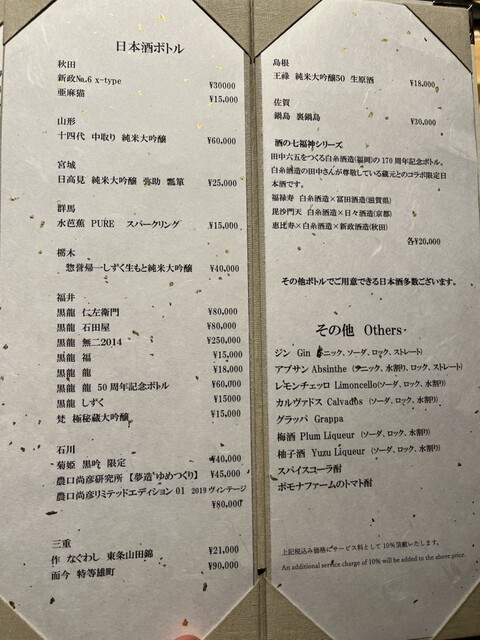 日本酒ボトル
秋田
新政№.6 x-type ¥30000
亜麻猫 ¥15,000
山形
十四代 中取り 純米大吟醸 ¥60,000
宮城
日高見 純米大吟醸 弥助 瓢箪 ¥25,000
群馬
水芭蕉 PURE スパークリング ¥15,000
栃木
惣誉帰一しずく生もと純米大吟醸 ¥40,000
福井
黒龍 仁左衛門 ¥80,000
黒龍 石田屋 ¥80,000
黒龍 無二2014 ¥250,000
黒龍 福 ¥15,000
黒龍 龍 ¥18,000
黒龍 龍 50周年記念ボトル ¥60,000
黒龍 しずく ¥15000
梵 極秘蔵大吟醸 ¥15,000
石川
菊姫 黒吟 限定 ¥40,000
農口尚彦研究所【夢造ゆめつくり】 ¥45,000
農口尚彦リミテッドエディション01 2019ヴィンテージ
¥80,000
三重
作 なぐわし 東条山田錦 ¥21,000
而今 特等雄町 ¥90,000
島根
王祿 純米大吟醸50 生原酒 ¥18,000
佐賀
鍋島 裏鍋島 ¥30,000
酒の七福神シリーズ
田中六五をつくる白糸酒造(福岡)の170周年記念ボトル。
白糸酒造の田中さんが尊敬している蔵元とのコラボ限定日
本酒です。
福禄寿 白糸酒造×冨田酒造(滋賀県)
毘沙門天 白糸酒造×日々酒造(京都)
恵比寿×白糸酒造×新政酒造(秋田)
各¥20,000
その他ボトルでご用意できる日本酒多数ございます。
その他 Others·
ジン Gin (トニック、ソーダ、ロック、ストレート)
アブサン Absinthe (トニック、水割り、ロック、ストレート)
レモンチェッロ Limoncello(ソーダ、ロック、水割り)
カルヴァドス Calvados (ソーダ、ロック、水割り)
グラッパ Grappa
梅酒 Plum Liqueur (ソーダ、ロック、水割り)
柚子酒 Yuzu Liqueur (ソーダ、ロック、水割り)
スパイスコーラ酎
ポモナファームのトマト酎
上記税込み価格にサービス料として10%頂戴いたします。
An additional service charge of 10% will be added to the above price.